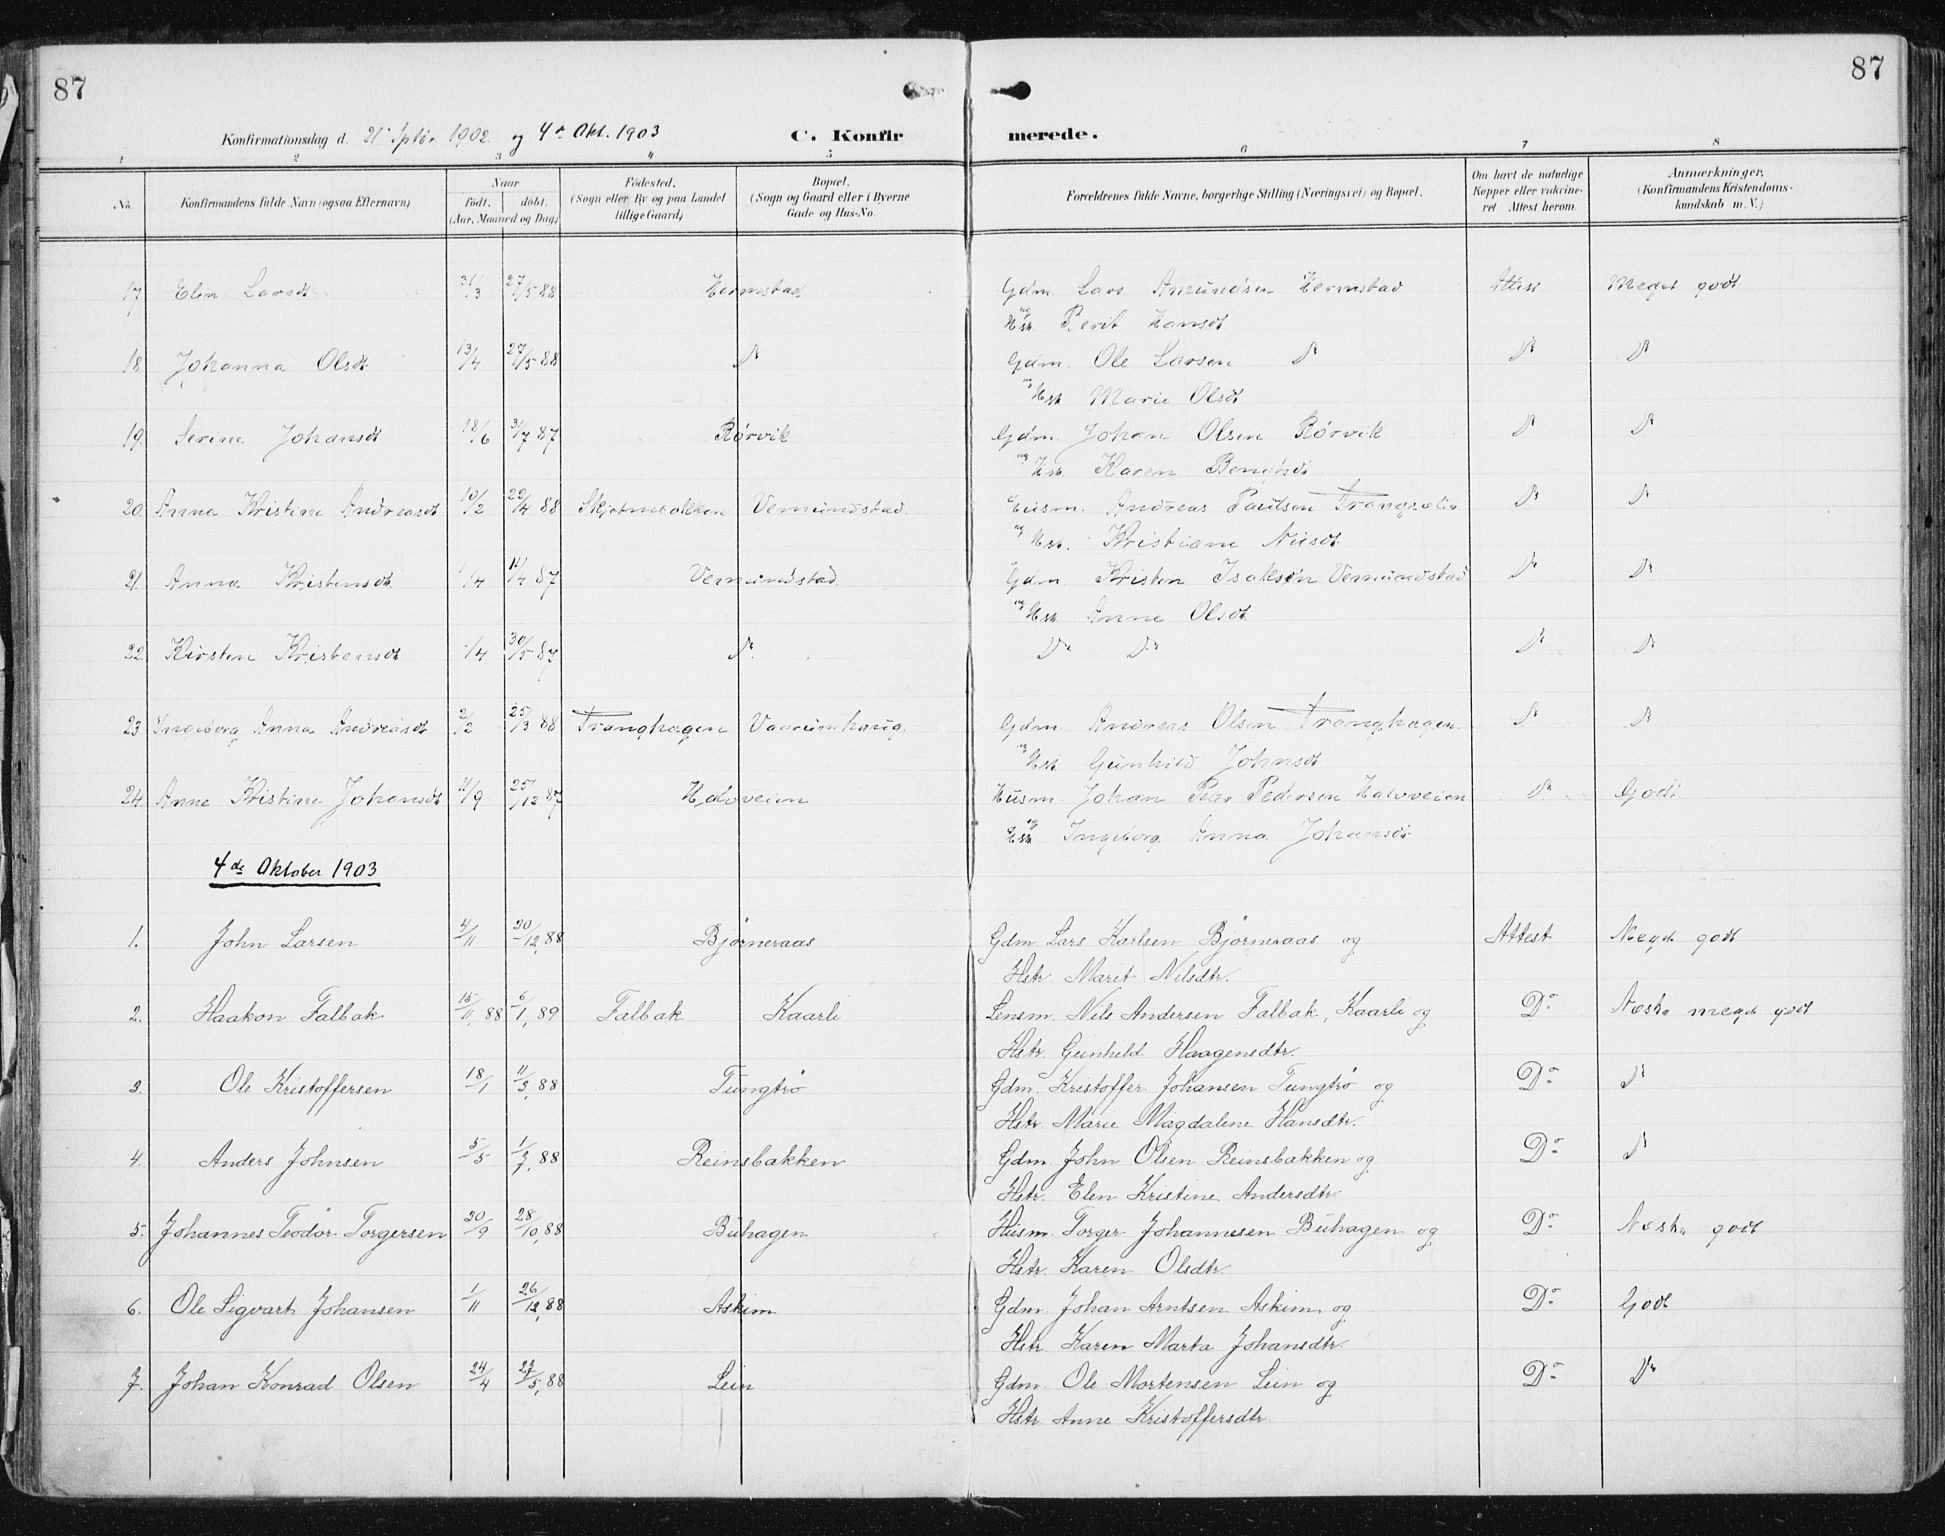 87
87
Konfirmationsdag d. 21 Septbr. 1902 og 4de Okt. 1903
C. Konfirmerede.
1 2 3 4 5 6 7 8
No.
Konfirmandens fulde Navn (ogsaa Efternavn)
Naar født. døbt. (Aar, Maaned og Dag)
Fødested. (Sogn eller By og paa Landet tillige Gaard)
Bopæl. (Sogn og Gaard eller i Byerne Gade og Hus-No.
Forældrenes fulde Navne, borgerlige Stilling (Næringsvei) og Bopæl.
Om havt de naturlige Kopper eller vakcineret. Attest herom.
Anmærkninger. (Konfirmandens Kristendomskundskab m. V.)
17 Elen Larsdt 31/3 27/5 88 Hermstad Gdm. Lars Amundsen Hermstad Attest Meget godt
og Hst. Berit Hansdt
18 Johanna Olsdt 13/4 27/5 88 Do Gdm. Ole Larsen Do Do Do
og Hst. Marie Olsdt
19. Serine Johansdt 18/6 31/7 87 Rørvik Gdm. Johan Olsen Rørvik Do Do
og Hst. Karen
20. Anna Kristine Andreasdt 10/2 22/4 88 Skjølmebakken Vemundstad. Husm. Andreas Paulsen
og Hst. Kristiane Nilsdt Do Do
21. Anna Kristensdt 1/4 87 Vemundstad. Gdm. Kristen Isaksen Vemundstad Do Do
og Hst. Anne Olsdt
22. Kirsten Kristensdt /4 30/5 87 Do. Do Do Do Do
23 Ingeborg Anna Andreasdt 2/2 25/3 88 Tranghagen Vaarumhaug. Gdm. Andreas Olsen Tranghagen. Do Do
og Hst. Gunhild Johnsdt
24. Anne Kristine Johansdt 11/9 25/12 87 Halvveien Husm. Johan Peter Pedersen Halvveien Do. Godt
og Hst. Ingeborg Anna Johansdt
4de Oktober 1903
1. John Larsen 4/11 30/12, 88 Bjørneraas Gdm. Lars Karlsen Bjørneraas og Attest Meget godt
Hstr. Marit Nilsdtr.
2. Haakon Falbak 15/11, 88 6/1, 89 Falbak Kaarli Lensm. Nils Andersen Falbak, Kaarli og Do Næsten meget godt
Hstr. Gunhild Haagensdtr.
3. Ole Kristoffersen 18/1 11/3, 88 Tungtrø Gdm. Kristoffer Johansen Tungtrø og Do Do
Hstr. Marie Magdalene Hansdtr.
4. Anders Johnsen 5/5 1/7, 88 Reinsbakken Gdm. John Olsen Reinsbakken og Do Do
Hstr. Elen Kristine Andersdtr.
5. Johannes Teodor Torgersen 30/9 28/10, 88 Buhagen Husm. Torger Johannesen Buhagen og Do Næsten godt
Hstr. Karen Olsdtr.
6. Ole Sigvart Johansen 1/11 26/12, 88 Askim Gdm. Johan Arntsen Askim og Do Godt
Hstr. Karen Marta Johansdtr.
7. Johan Konrad Olsen 24/4 27/5, 88 Lein Gdm. Ole Mortensen Lein og Do Do
Hstr. Anne Kristoffersdtr